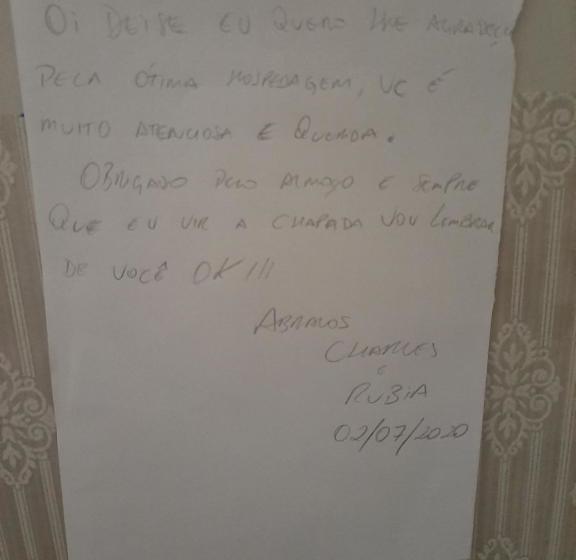 Oi DEISE EU QUERO LHE AGRADECER
PELA ÓTIMA HOSPEDAGEM, VC É
MUITO ATENCIOSA E QUERIDA.
OBRIGADO PELO ALMOÇO E SEMPRE
QUE EU VIR A CHAPADA VOU LEMBRAR
DE VOCÊ OK!!!
ABRAÇOS
CHARLES
E
RUBIA
02/07/2020